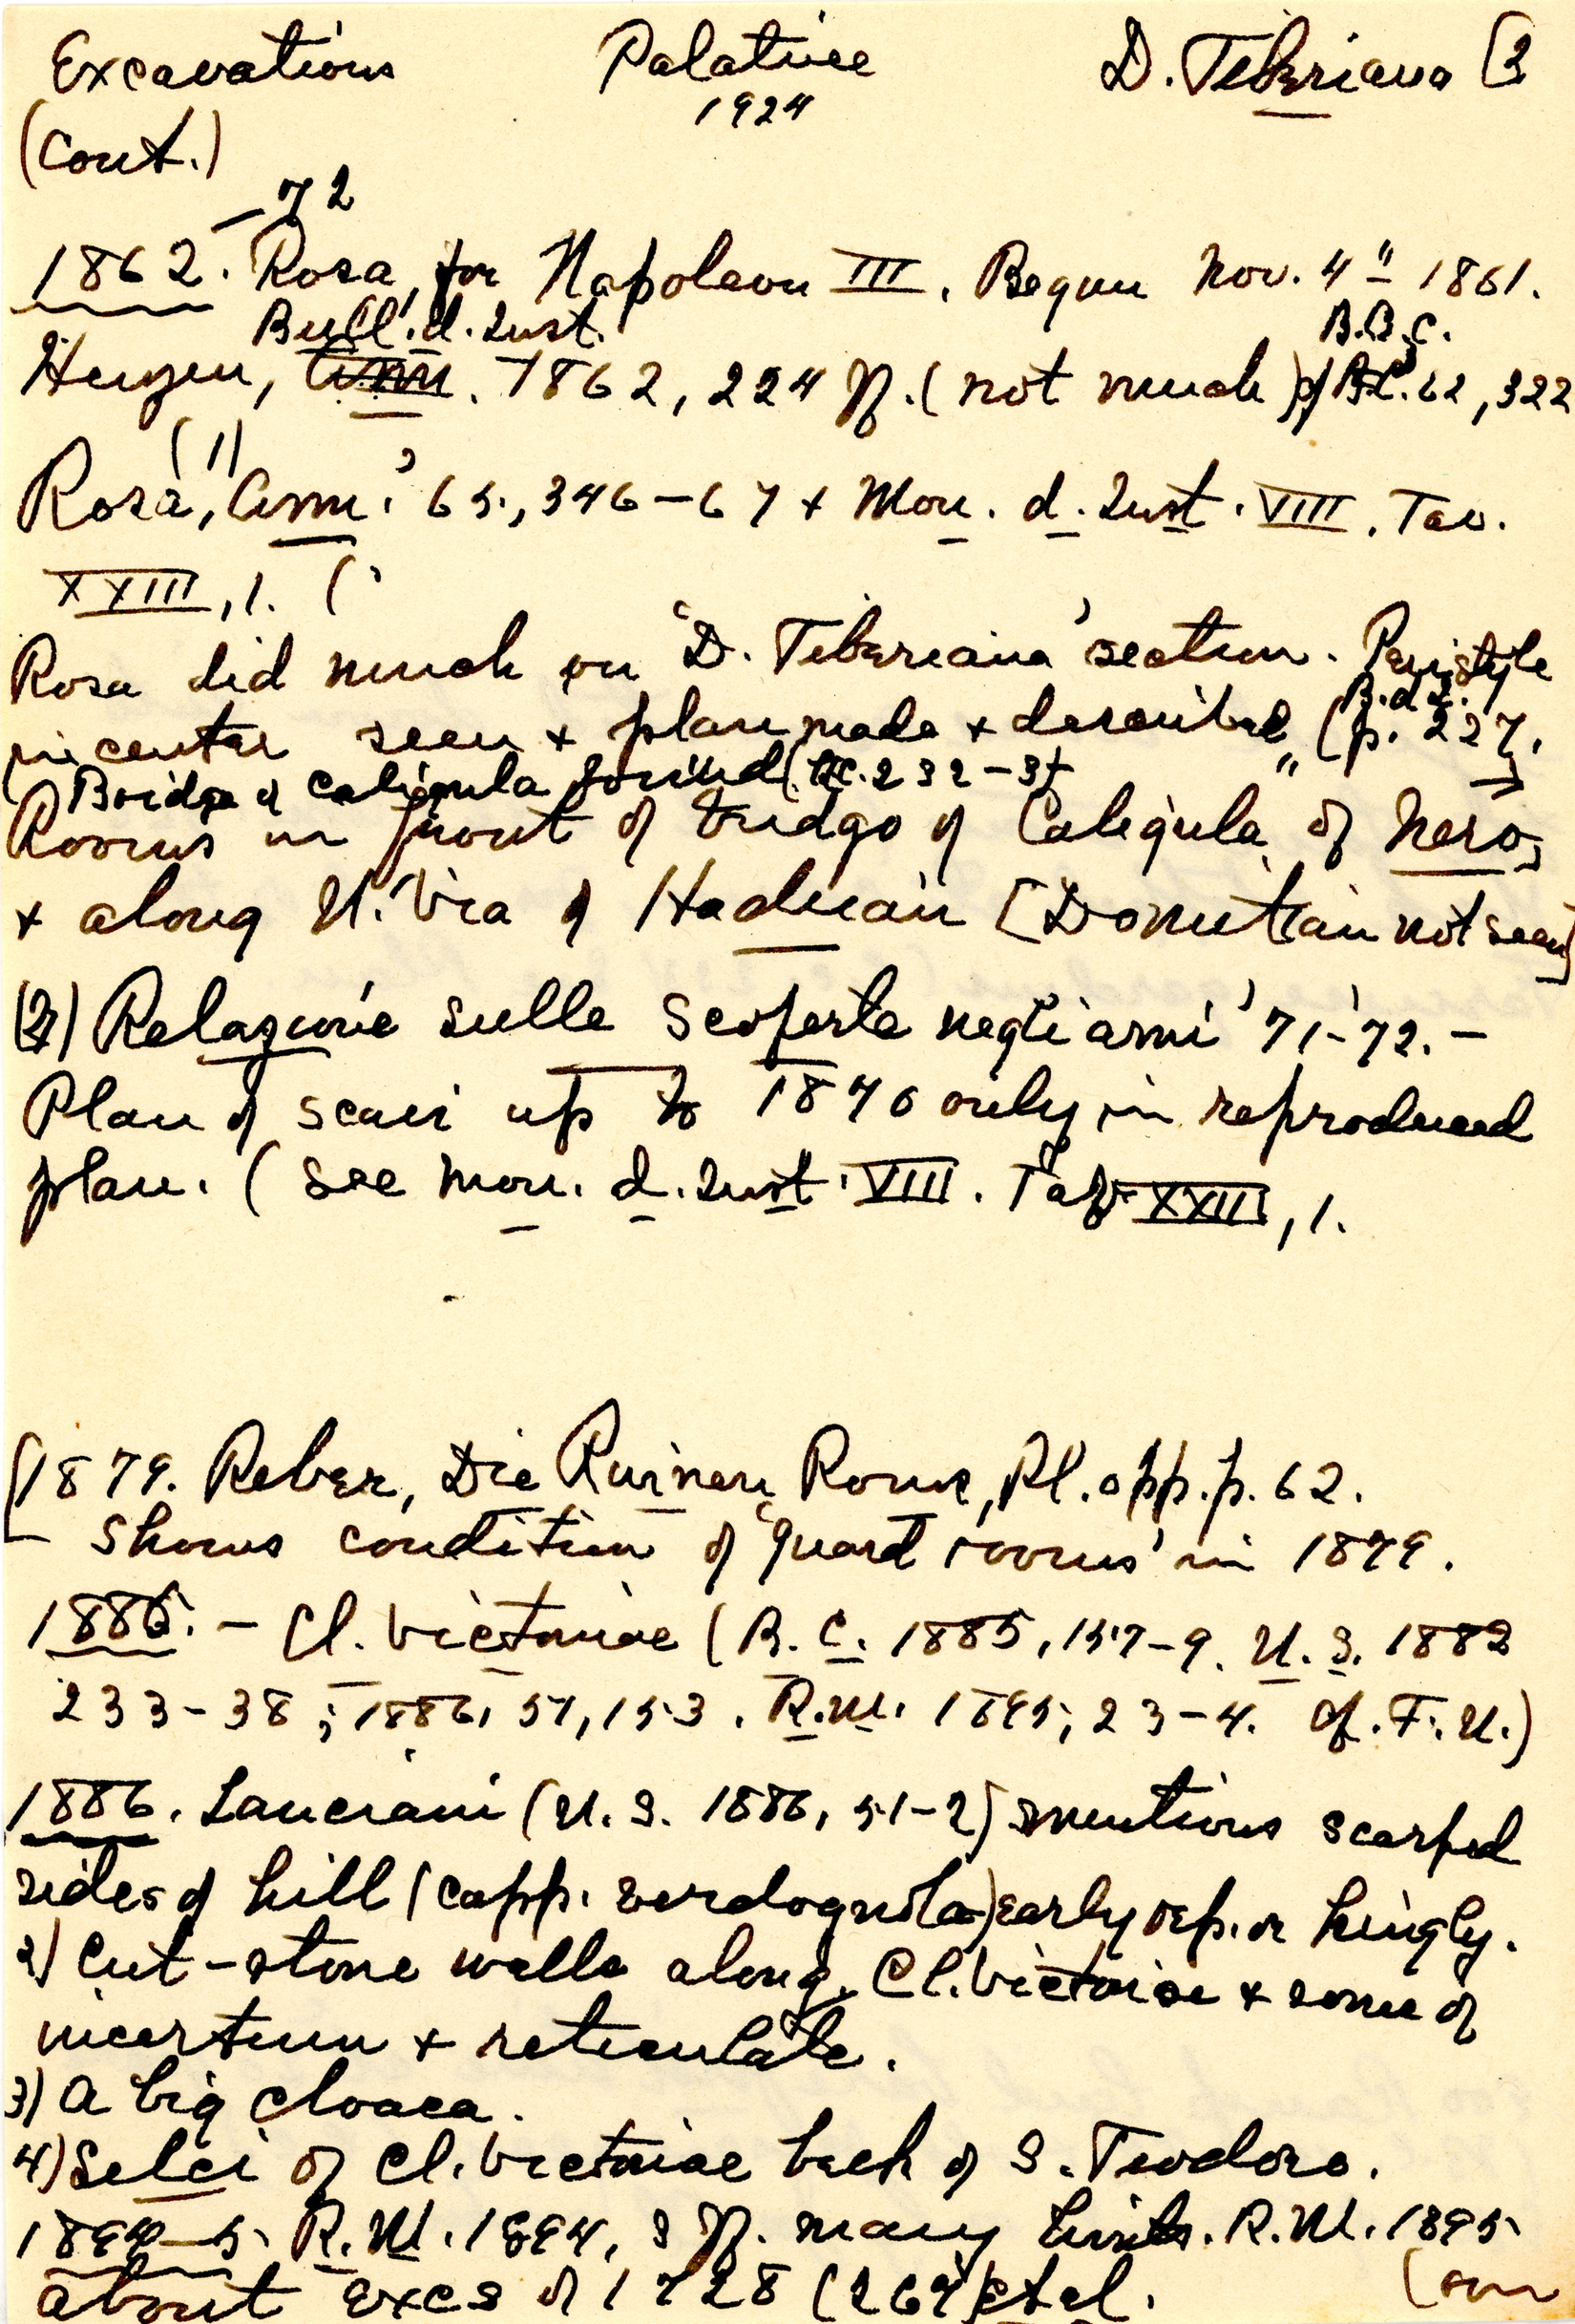 Excavations Palatine D. Tiberiana [3
1924
(Cont.)
-72
1862. Rosa, for Napoleon III. Begun Nov. 4" 1861.
Bull. d. Inst. B.B.C.
Henzen, 1862, 224 ff. (not much) 62, 322
(1)
Rosa, Ann. '65, 346-67 + Mon. d. Inst. VIII. Tav.
XXIII, 1. (
Rosa did much on 'D. Tiberiana' section. Peristyle
B.d.I.
in center seen + plan made + described (p. 227,
Bridge of Caligula found 232-3
Rooms in front of bridge of Caligula, of Nero,
+ along N. Via of Hadrian [Domitian not seen]
(2) Relazione sulle scoperte negli anni '71-'72. -
Plan of scavi up to 1870 only in reproduced
plan. (See Mon. d. Inst. VIII. Taf. XXIII, 1.
[1879. Reber, Die Ruinen Roms, Pl. opp. p. 62.
- Shows condition of 'guard rooms' in 1879.
1886. - Cl. Victoriae (B.C. 1885, 157-9. N.S. 1882
233-38; 1886, 51, 153. R.M. 1895, 23-4. Cf. F.U.)
1886. Lanciani (N.S. 1886, 51-2) mentions scarped
sides of hill (capp. verdognola) early rep. or kingly.
2) Cut-stone walls along Cl. Victoriae + some of
incertum + reticulate.
3) A big cloaca.
4) Selci of Cl. Victoriae back of S. Teodoro.
1894-5 R.M. 1894, 3 ff. many hints. R.M. 1895
about excs of 1728 (269) et al. (on